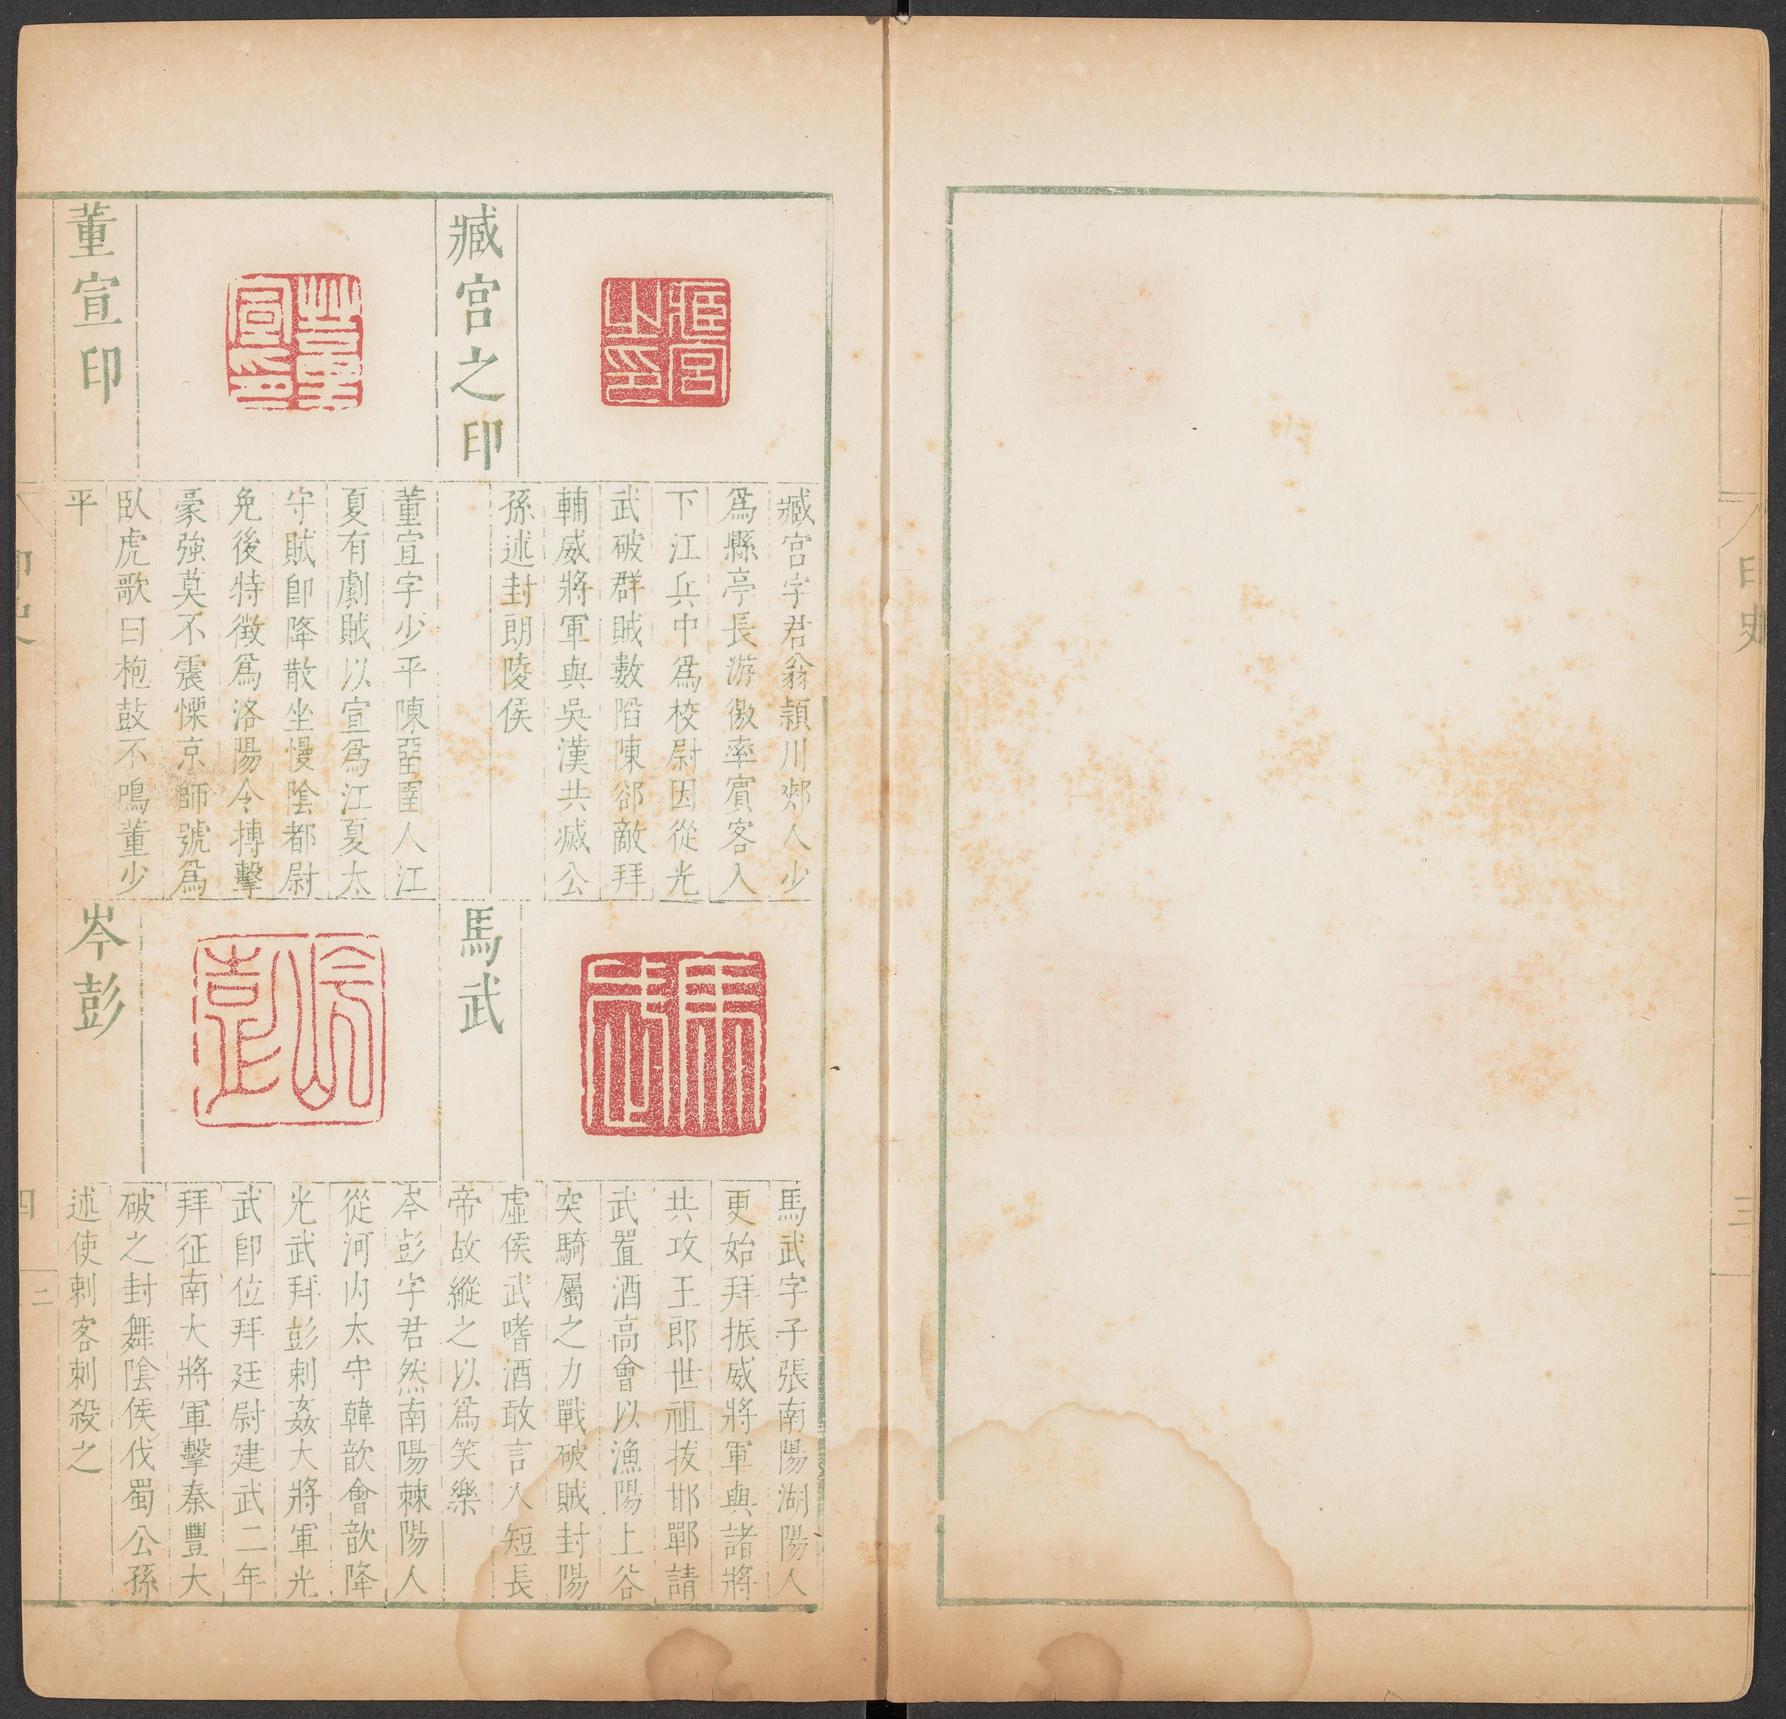 印史
三
臧宮之印
臧宮字君翁潁川郟人少
爲縣亭長游徼率賓客入
下江兵中爲校尉因從光
武破群賊數陷陳郤敵拜
輔威將軍與吳漢共滅公
孫述封朗陵侯
董宣印
董宣字少平陳畱圉人江
夏有劇賊以宣爲江夏太
守賊卽降散坐慢陰都尉
免後特徵爲洛陽令搏擊
豪強莫不震慄京師號爲
臥虎歌曰枹鼓不鳴董少
平
馬武
馬武字子張南陽湖陽人
更始拜振威將軍與諸將
共攻王郎世祖拔邯鄲請
武置酒高會以漁陽上谷
突騎屬之力戰破賊封陽
虛侯武嗜酒敢言人短長
帝故縱之以爲笑樂
岑彭
岑彭字君然南陽棘陽人
從河內太守韓歆會歆降
光武拜彭刺姦大將軍光
武卽位拜廷尉建武二年
拜征南大將軍擊秦豐大
破之封舞陰侯伐蜀公孫
述使刺客刺殺之
印史
四